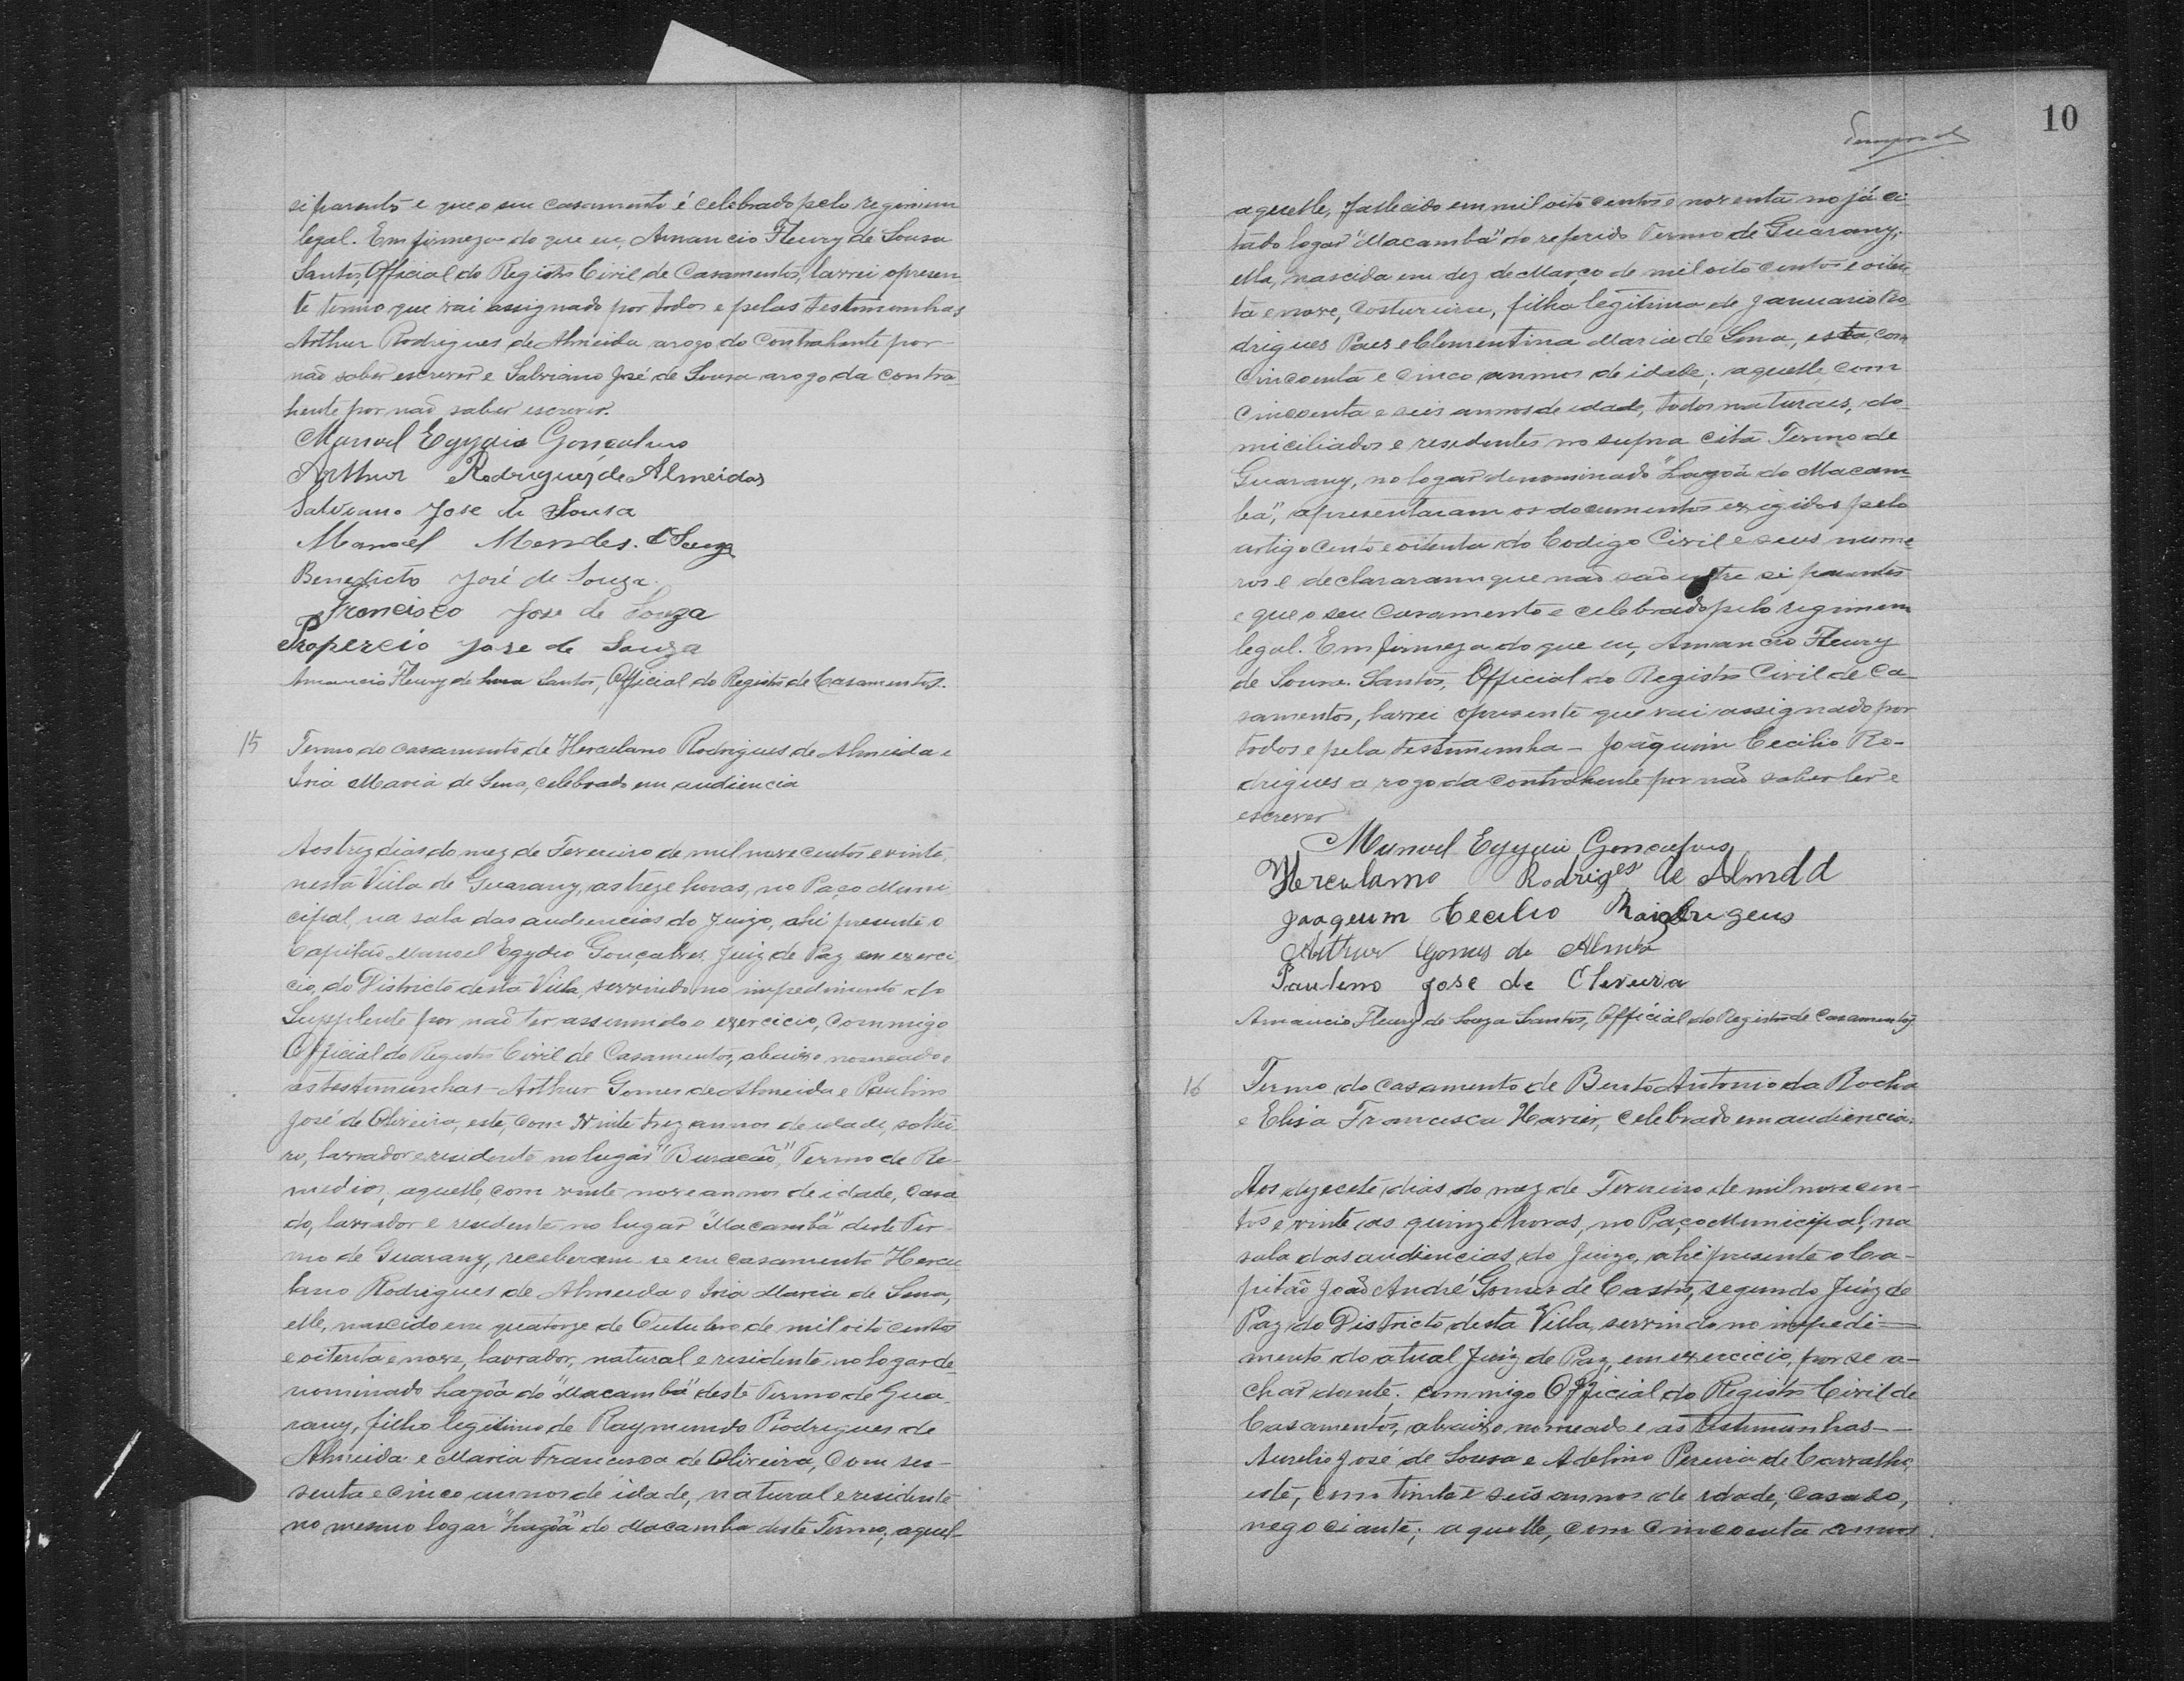 si parentes e que o seu casamento é celebrado pelo regimem
legal. Em firmeza do que eu, Amancio Fleury de Sousa
Santos, Official do Registro Civil de Casamentos, lavrei o presen-
te termo que vai assignado por todos e pelas testemunhas
Arthur Rodrigues de Almeida a rogo do Contrahente por
não saber escrever e Salviano José de Sousa a rogo da contra-
hente por não saber escrever.
Manoel Egydio Gonçalves
Arthur Rodrigues de Almeidas
Salviano Jose de Sousa
Manoel Mendes d Souza
Benedicto José de Souza.
Francisco Jose de Souza
Propercio Jose de Souza
Amancio Fleury de Sousa Santos, Official do Registro de Casamentos.
15 Termo do casamento de Herculano Rodrigues de Almeida e
Iria Maria de Sena, celebrado em audiencia
Aos trez dias do mez de Fevereiro de mil novecentos e vinte,
nesta Villa de Guarany, as treze horas, no Paço Muni-
cipal, na sala das audiencias do Juizo, ahi presente o
Capitão Manoel Egydio Gonçalves, Juiz de Paz em exerci-
cio, do Districto desta Villa, servindo no impedimento do
Supplente por não ter assumido o exercicio, commigo
Official do Registro Civil de Casamentos, abaixo nomeado e
as testemunhas - Arthur Gomes de Almeida e Paulino
José de Oliveira, este, com vinte trez annos de idade, soltei-
ro, lavrador e residente no lugar "Buracão", Termo de Re-
medios, aquelle com vinte nove annos de idade, casa-
do, lavrador e residente no lugar "Macamba" deste Ter-
mo de Guarany, receberam se em casamento Hercu-
lano Rodrigues de Almeida e Iria Maria de Sena,
elle, nascido em quatorze de Outubro de mil oito centos
e oitenta e nove, lavrador, natural e residente no logar de-
nominado Lagôa do "Macamba" deste Termo de Gua-
rany, filho legitimo de Raymundo Rodrigues de
Almeida e Maria Francisca de Oliveira, com ses-
senta e cinco annos de idade, natural e residente
no mesmo logar "Lagôa" do Macamba deste Termo, aquel-
10
aquelle, fallecido em mil oito centos e noventa no já ci-
tado logar "Macamba" do referido Termo de Guarany;
ella, nascida em dez de Março de mil oito centos e oiten-
ta e nove, costureira, filha legitima de Januario Ro-
drigues Paes e Clementina Maria de Sena, esta, com
cincoenta e cinco annos de idade; aquelle, com
cincoenta e seis annos de idade, todos naturaes, do-
miciliados e residentes no supra cita Termo de
Guarany, no logar denominado "Lagôa do Macam-
ba", apresentaram os documentos exigidos pelo
artigo cento e oitenta do Codigo Civil e seus nume-
ros e declararam que não são entre si parentes
e que o seu casamento e celebrado pelo regimem
legal. Em firmeza do que eu, Amancio Fleury
de Sousa Santos, Official do Registro Civil de Ca-
samentos, lavrei o presente que vai assignado por
todos e pela testemunha - Joaquim Cecilio Ro-
drigues a rogo da contrahente por não saber ler e
escrever
Manoel Egydio Gonçalves
Herculamo Rodriges de Almdd
Joaqeum Cecilio
Arthur Gomes de
Paulino Jose de Oliveira
Amancio Fleury de Souza Santos, Official do Registro de Casamentos
16 Termo do casamento de Bento Antonio da Rocha
e Elisa Francisca Xavier, celebrado em audiencia.
Aos dezecete dias do mez de Fevereiro de mil novecen-
tos e vinte as quinze horas, no Paço Municipal, na
sala das audiencias do Juizo, ahi presente o Ca-
pitão João André Gomes de Castro, segundo Juiz de
Paz do Districto desta Villa, servindo no impedi-
mento do atual Juiz de Paz, em exercicio, por se a-
char doente, commigo Official do Registro Civil de
Casamentos, abaixo nomeado e as testemunhas -
Aurelio José de Sousa e Adelino Pereira de Carvalho,
este, com trinta e seis annos de edade, casado,
negociante; aquelle, com cincoenta annos